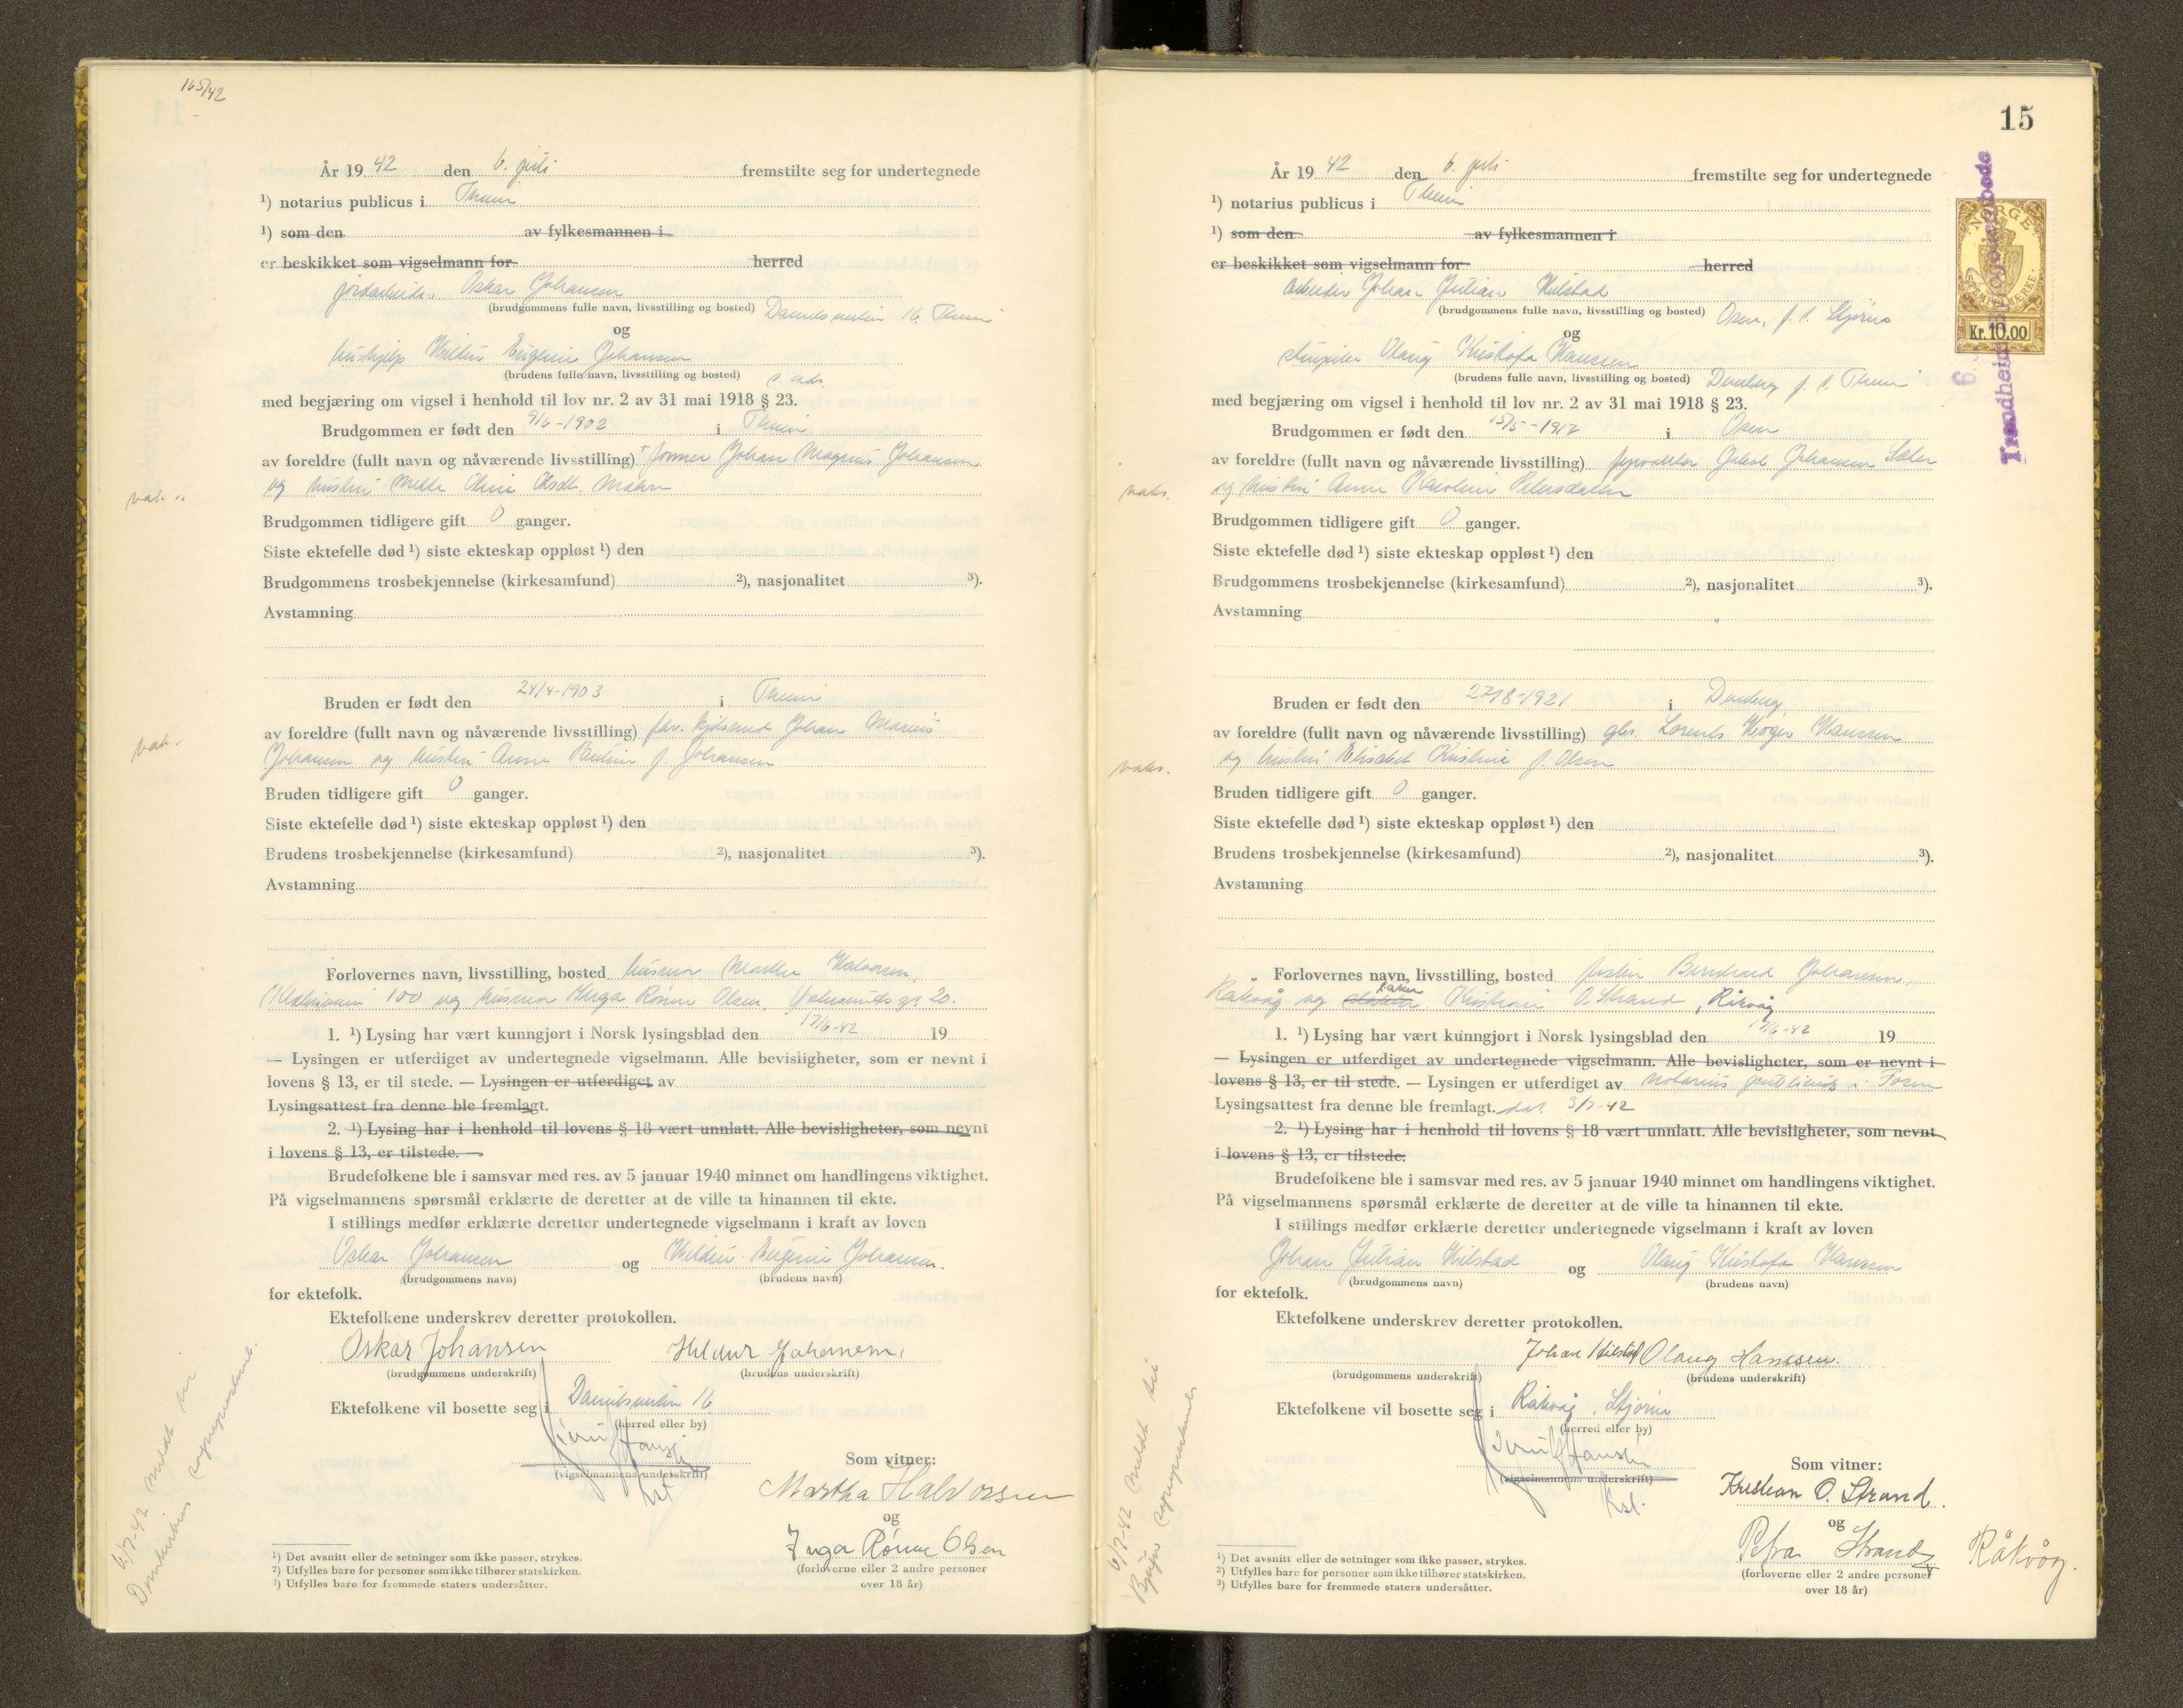 165/42
År 1942 den 6. juli fremstilte seg for undertegnede
¹) notarius publicus i Theim
¹) som den av fylkesmannen i
er beskikket som vigselmann for herred
Oskar Johansen
(brudgommens fulle navn, livsstilling og bosted) 16, Theim
og
hushjelp Eugenie Johansen
(brudens fulle navn, livsstilling og bosted) s. adr.
med begjæring om vigsel i henhold til lov nr. 2 av 31 mai 1918 § 23.
Brudgommen er født den 9/6-1902 i Theim
av foreldre (fullt navn og nåværende livsstilling) Johan Magnus Johansen
og hustru Olsdt.
vaks.
Brudgommen tidligere gift 0 ganger.
Siste ektefelle død ¹) siste ekteskap oppløst ¹) den
Brudgommens trosbekjennelse (kirkesamfund) ²), nasjonalitet ³).
Avstamning
Bruden er født den 24/4-1903 i Theim
av foreldre (fullt navn og nåværende livsstilling) Johan Marius
vaks.
Johansen og hustru Anna Pauline f. Johansen
Bruden tidligere gift 0 ganger.
Siste ektefelle død ¹) siste ekteskap oppløst ¹) den
Brudens trosbekjennelse (kirkesamfund) ²), nasjonalitet ³).
Avstamning
Forlovernes navn, livsstilling, bosted husmor Martha Halvorsen,
100 og husmor Inga Rönne Olsen, 20.
1. ¹) Lysing har vært kunngjort i Norsk lysingsblad den 17/6-42 19
— Lysingen er utferdiget av undertegnede vigselmann. Alle bevisligheter, som er nevnt i
lovens § 13, er til stede. — Lysingen er utferdiget av
Lysingsattest fra denne ble fremlagt.
2. ¹) Lysing har i henhold til lovens § 18 vært unnlatt. Alle bevisligheter, som nevnt
i lovens § 13, er tilstede. —
Brudefolkene ble i samsvar med res. av 5 januar 1940 minnet om handlingens viktighet.
På vigselmannens spørsmål erklærte de deretter at de ville ta hinannen til ekte.
I stillings medfør erklærte deretter undertegnede vigselmann i kraft av loven
Oskar Johansen og Eugenie Johansen.
(brudgommens navn) (brudens navn)
for ektefolk.
Ektefolkene underskrev deretter protokollen.
Oskar Johansen Hildur Johansen.
(brudgommens underskrift) (brudens underskrift)
Ektefolkene vil bosette seg i 16
(herred eller by)
(vigselmannens underskrift)
Som vitner:
Martha Halvorsen
og
Inga Rönne Olsen
(forloverne eller 2 andre personer
over 18 år)
6/7-42 meldt til
Domkirkens sogneprestemb.
¹) Det avsnitt eller de setninger som ikke passer, strykes.
²) Utfylles bare for personer som ikke tilhører statskirken.
³) Utfylles bare for fremmede staters undersåtter.
15
År 1942 den 6. juli fremstilte seg for undertegnede
¹) notarius publicus i Theim
¹) som den av fylkesmannen i
er beskikket som vigselmann for herred
NORGE
STEMPELMERKE.
Kr. 10.00
arbeider Johan Julian Hilstad
(brudgommens fulle navn, livsstilling og bosted) Osen, p. t. Stjørna
og
Olaug Kristofa Hanssen
(brudens fulle navn, livsstilling og bosted) p. t. Theim
med begjæring om vigsel i henhold til lov nr. 2 av 31 mai 1918 § 23.
Brudgommen er født den i Osen
av foreldre (fullt navn og nåværende livsstilling) fyrvokter Johansen
og hustru Anna Karoline Petersdatter
vaks.
Brudgommen tidligere gift 0 ganger.
Siste ektefelle død ¹) siste ekteskap oppløst ¹) den
Brudgommens trosbekjennelse (kirkesamfund) ²), nasjonalitet ³).
Avstamning
Bruden er født den 27/8-1921 i
av foreldre (fullt navn og nåværende livsstilling) Hanssen
og hustru Elisabet Kristine f. Olsen
vaks.
Bruden tidligere gift 0 ganger.
Siste ektefelle død ¹) siste ekteskap oppløst ¹) den
Brudens trosbekjennelse (kirkesamfund) ²), nasjonalitet ³).
Avstamning
Forlovernes navn, livsstilling, bosted Bernhard Johansen,
Råkvåg og baker Kristian O. Strand, Råkvåg
1. ¹) Lysing har vært kunngjort i Norsk lysingsblad den 19
— Lysingen er utferdiget av undertegnede vigselmann. Alle bevisligheter, som er nevnt i
lovens § 13, er til stede. — Lysingen er utferdiget av notarius publicus i Fosen
Lysingsattest fra denne ble fremlagt. dat 3/7-42
2. ¹) Lysing har i henhold til lovens § 18 vært unnlatt. Alle bevisligheter, som nevnt
i lovens § 13, er tilstede.
Brudefolkene ble i samsvar med res. av 5 januar 1940 minnet om handlingens viktighet.
På vigselmannens spørsmål erklærte de deretter at de ville ta hinannen til ekte.
I stillings medfør erklærte deretter undertegnede vigselmann i kraft av loven
Johan Julian Hilstad og Olaug Kristofa Hanssen
(brudgommens navn) (brudens navn)
for ektefolk.
Ektefolkene underskrev deretter protokollen.
Johan Hilstad Olaug Hanssen.
(brudgommens underskrift) (brudens underskrift)
Ektefolkene vil bosette seg i Råkvåg, Stjørna
(herred eller by)
(vigselmannens underskrift)
Som vitner:
Kristian O. Strand.
og
Petra Strand, Råkvåg.
(forloverne eller 2 andre personer
over 18 år)
6/7-42 meldt til
Bjugn sogneprestemb.
¹) Det avsnitt eller de setninger som ikke passer, strykes.
²) Utfylles bare for personer som ikke tilhører statskirken.
³) Utfylles bare for fremmede staters undersåtter.